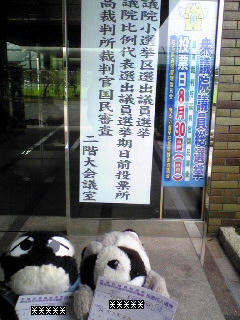 議院小選挙区選出議員選挙
議院比例代表選出議員選挙期日前投票所
高裁判所裁判官国民審査
二階大会議室
衆議院議員総選挙
投票日8月30日(日)
xxxxxx
xxxxxx